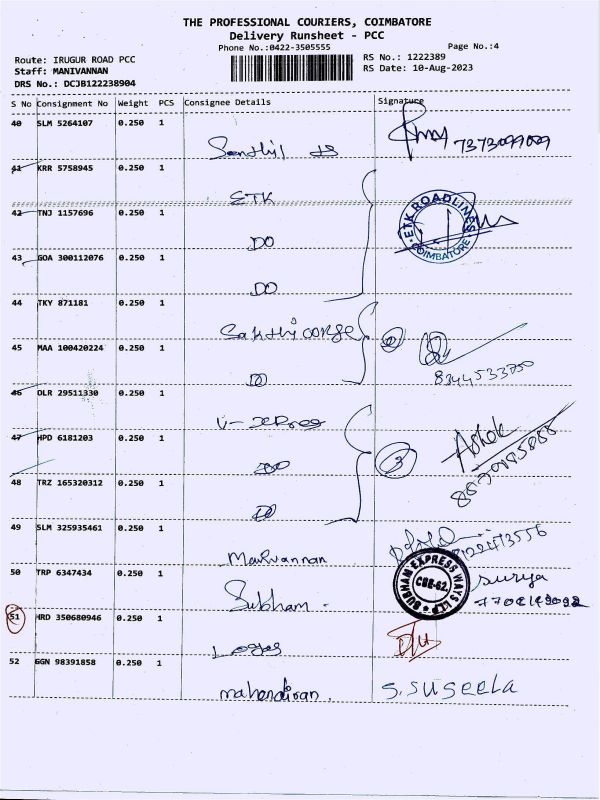 THE PROFESSIONAL COURIERS, COIMBATORE
Delivery Runsheet - PCC
Phone No.:0422-3505555
Page No.:4
Route: IRUGUR ROAD PCC
RS No.: 1222389
Staff: MANIVANNAN
RS Date: 10-Aug-2023
DRS No.: DCJB122238904
S No Consignment No Weight PCS Consignee Details Signature
40 SLM 5264107 0.250 1
41 KRR 5758945 0.250 1
ETK
42 TNJ 1157696 0.250 1
DO
ETK ROADLINES COIMBATORE
43 GOA 300112076 0.250 1
DO
44 TKY 871181 0.250 1
45 MAA 100420224 0.250 1
DO
8344533750
46 DLR 29511330 0.250 1
47 HPD 6181203 0.250 1
DO
3
Ashok
48 TRZ 165320312 0.250 1
DO
49 SLM 325935461 0.250 1
50 TRP 6347434 0.250 1
Subham.
SUBHAM EXPRESS WAYS LLP CBE-62.
Surya
51 HRD 350680946 0.250 1
Logos
52 GGN 98391858 0.250 1
mahendiran.
S. SUSEELA